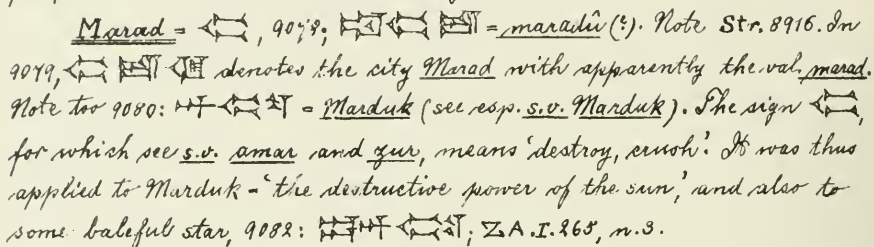 Marad = 𒀫, 9078; 𒀫 𒁕 = maradû (?). Note Str. 8916. In
9079, 𒀫 𒁕 𒆠 denotes the city Marad with apparently the val. marad.
Note too 9080: 𒀭 𒀫 𒌓 = Marduk (see esp. s.v. Marduk). The sign 𒀫,
for which see s.v. amar and zur, means 'destroy, crush'. It was thus
applied to Marduk - 'the destructive power of the sun', and also to
some baleful star, 9082: 𒀭 𒀫 𒌓; Z.A.I.265, n.3.